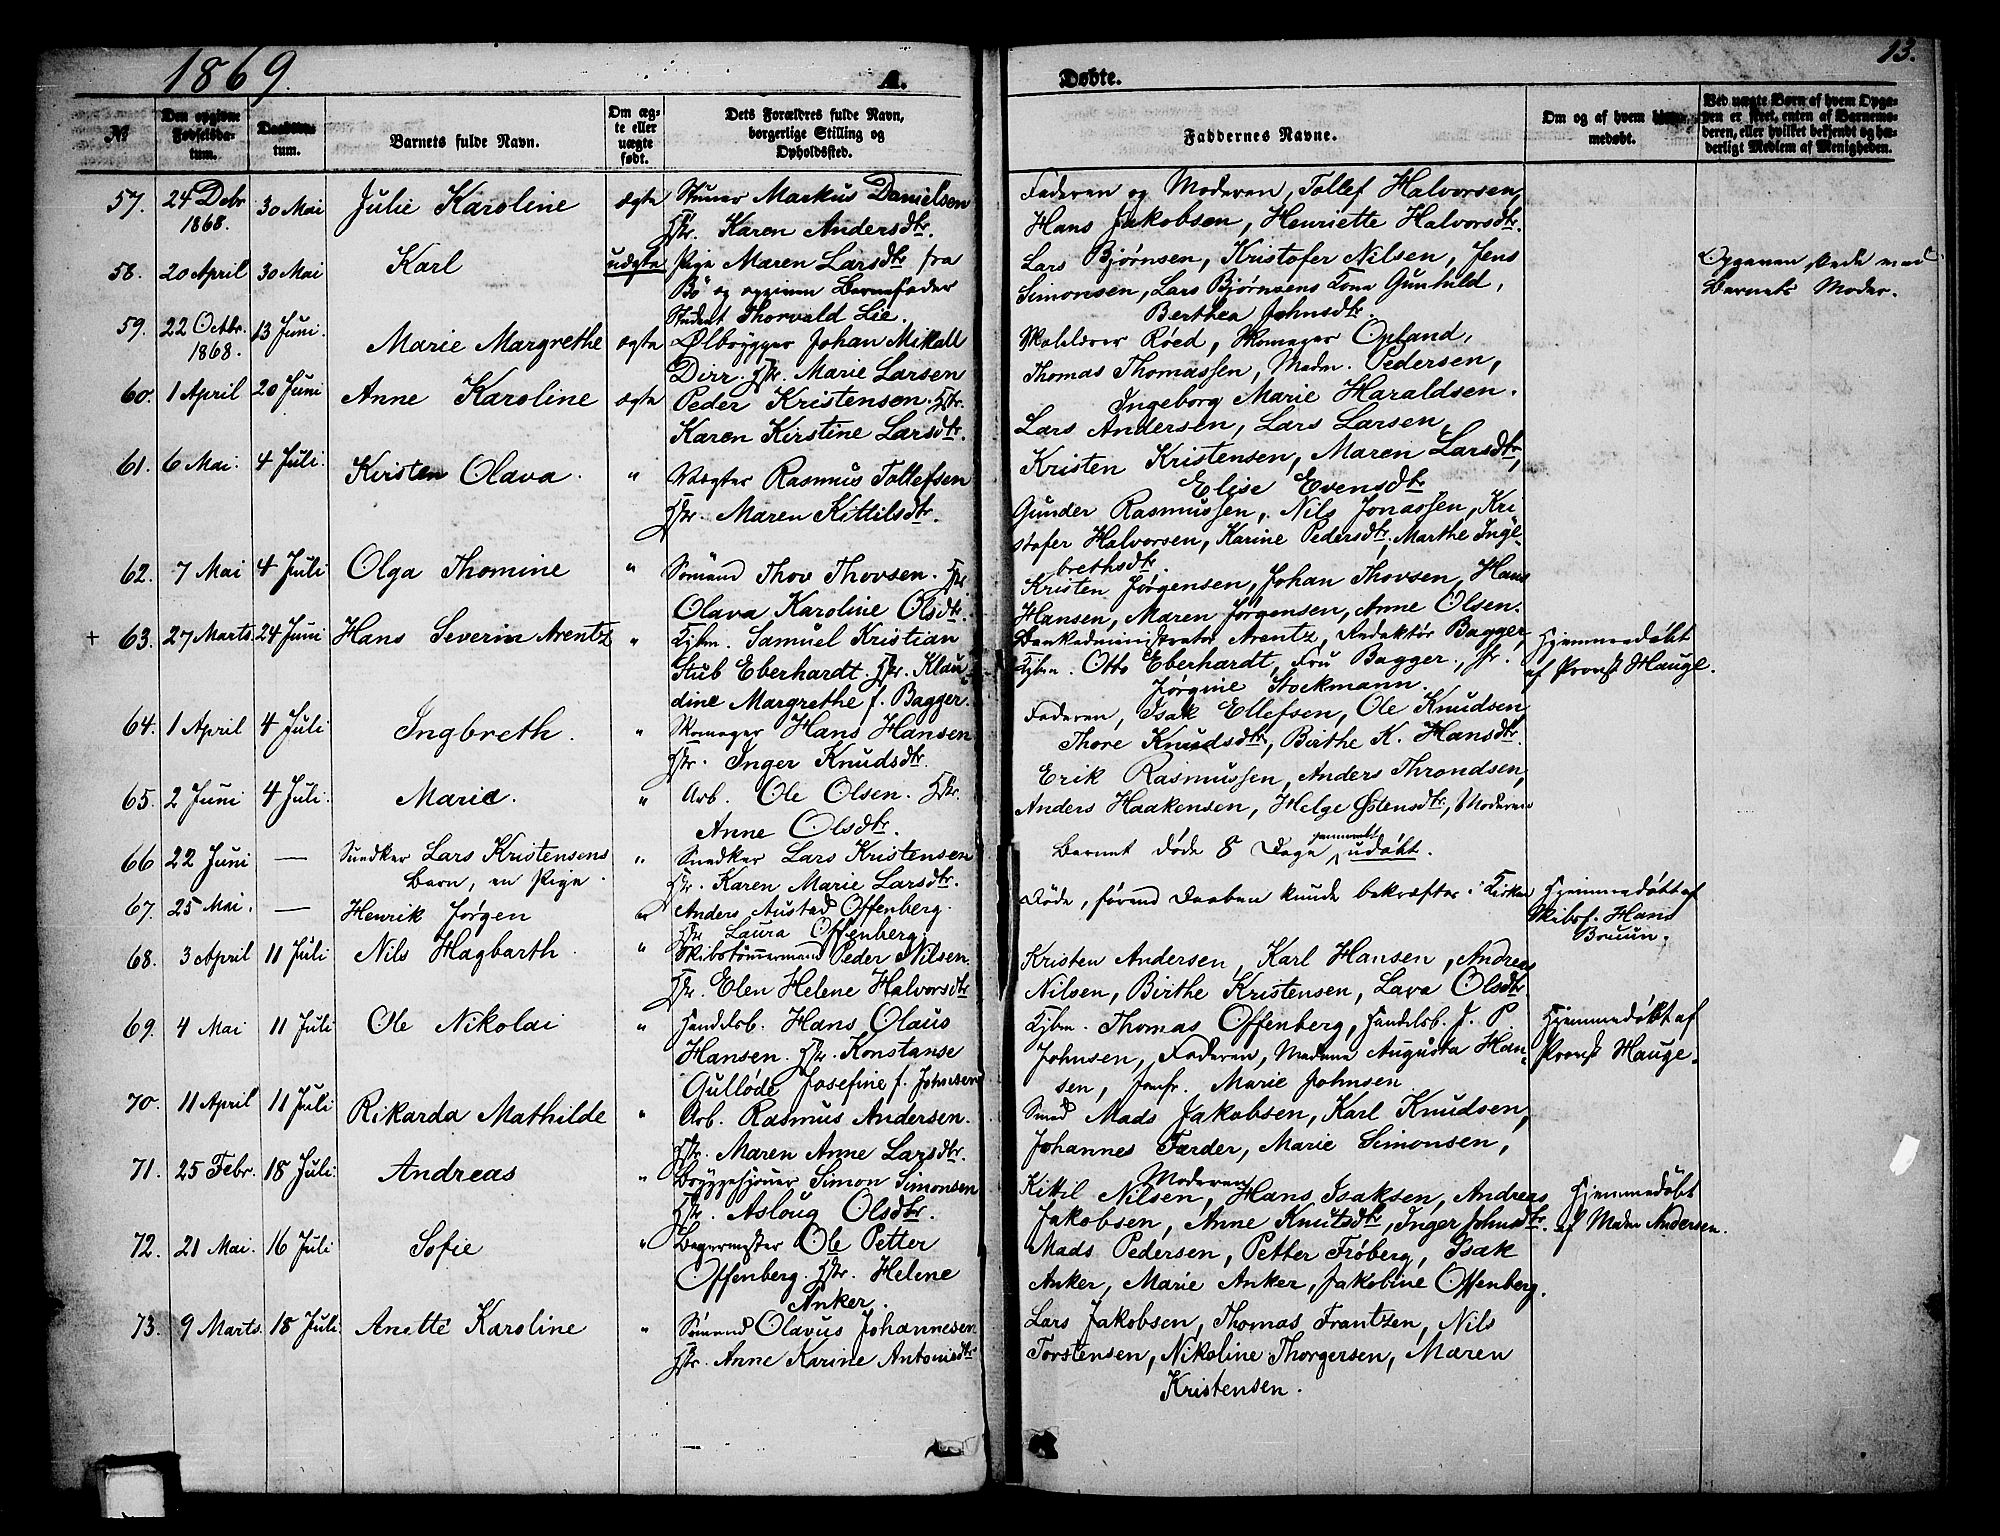 1869.
A.
Døbte.
13.
№
Den opgivne Fødselsdatum.
Daabsdatum.
Barnets fulde Navn.
Om ægte eller uægte født.
Dets Forældres fulde Navn, borgerlige Stilling og Opholdssted.
Faddernes Navne.
Om og af hvem hjemmedøbt.
Ved uægte Børn af hvem Opgaven er skeet, enten af Barnemoderen, eller hvilket bekjendt og hæderligt Medlem af Menigheden.
57. 24 Debr 1868. 30 Mai Julie Karoline ægte Stuver Markus Danielsen
Hstr. Karen Andersdtr.
Faderen og Moderen, Tollef Halvorsen,
Hans Jakobsen, Henriette Halvorsdtr.
58. 20 April 30 Mai Karl uægte Pige Maren Larsdtr fra
Bö og opgiven Barnefader
Student Thorvald Lie.
Lars Bjørnsen, Kristofer Nilsen, Jens
Simonsen, Lars Bjørnsens Kone Gunhild,
Berthea Johnsdtr.
Opgaven skede med
Barnets Moder.
59. 22 Octbr. 1868. 13 Juni. Marie Margrethe ægte Ølbrygger Johan Mikall
Dirr. Hstr. Marie Larsen
Skolelærer Røed, Skomager Opland,
Thomas Thomassen, Madm. Pedersen,
Ingeborg Marie Haraldsen.
60. 1 April 20 Juni Anne Karoline ægte Peder Kristensen. Hstr.
Karen Kirstine Larsdtr.
Lars Andersen, Lars Larsen,
Kristen Kristensen, Maren Larsdtr,
Elise Evensdtr
61. 6 Mai. 4 Juli. Kirsten Olava. " Vægter Rasmus Tollefsen
Hstr. Maren Kittilsdtr.
Gunder Rasmussen, Nils Jonassen, Kri-
stofer Halvorsen, Karine Pedersdtr, Marthe Inge-
brethsdtr.
62. 7 Mai 4 Juli Olga Thomine " Sömand Thov Thovsen. Hstr
Olava Karoline Olsdtr.
Kristen Jørgensen, Johan Thovsen, Hans
Hansen, Maren Jørgensen, Anne Olsen.
+ 63. 27 Marts 24 Juni Hans Severin Arentz " Kjbm. Samuel Kristian
Stub Eberhardt. Hstr. Klau-
dine Margrethe f. Bagger.
Bankadministrator Arentz, Redaktør Bagger,
Kjbm. Otto Eberhardt, Fru Bagger, fr.
Jørgine Stockmann.
Hjemmedøbt
af Provst Hauge.
64. 1 April 4 Juli Ingbreth. " Skomager Hans Hansen
Hstr. Inger Knudsdtr.
Faderen, Isak Ellefsen, Ole Knudsen
Thore Knudsdtr, Birthe K. Hansdtr.
65. 2 Juni 4 Juli. Marie. " Arb. Ole Olsen. Hstr.
Anne Olsdtr.
Erik Rasmussen, Anders Throndsen,
Anders Haakensen, Helge Østensdtr, Moderen
66 22 Juni — Snedker Lars Kristensens
Barn, en Pige. " Snedker Lars Kristensen
Hstr. Karen Marie Larsdtr.
Barnet døde 8 Dage gammelt udøbt.
67. 25 Mai. — Henrik Jørgen " Anders Austad Offenberg.
Hstr Laura Offenberg.
Døde, førend Daaben kunde bekræftes i Kirken
Hjemmedøbt af
Skibsf. Hans
Bruun.
68. 3 April 11 Juli Nils Hagbarth. " Skibstömmermand Peder Nilsen.
Hstr. Elen Helene Halvorsdtr
Kristen Andersen, Karl Hansen, Andreas
Nilsen, Birthe Kristensen, Lava Olsdtr.
69. 4 Mai 11 Juli Ole Nikolai " Handelsb. Hans Olaus
Hansen. Hstr. Konstanse
Gulløde Josefine f. Johnsen
Kjbm. Thomas Offenberg, Handelsb. J. P.
Johnsen, Faderen, Madame Augusta Han-
sen, Jomfr. Marie Johnsen
Hjemmedøbt af
Provst Hauge.
70. 11 April 11 Juli Rikarda Mathilde " Arb. Rasmus Andersen.
Hstr. Maren Anne Larsdtr.
Smed Mads Jakobsen, Karl Knudsen,
Johannes Færder, Marie Simonsen,
Moderen
71. 25 Febr. 18 Juli. Andreas " Bryggesjouer Simon Simonsen
Hstr. Asloug Olsdtr.
Kittil Nilsen, Hans Isaksen, Andreas
Jakobsen, Anne Knutsdtr, Inger Johnsdtr.
Hjemmedøbt
af Madm Andersen.
72. 21 Mai. 16 Juli Sofie " Bagermester Ole Petter
Offenberg. Hstr. Helene
Anker.
Mads Pedersen, Petter Fröberg, Isak
Anker, Marie Anker, Jakobine Offenberg.
73. 9 Marts. 18 Juli. Anette Karoline " Sömand Olavus Johannesen
Hstr. Anne Karine Antonisdtr
Lars Jakobsen, Thomas Frantzen, Nils
Torstensen, Nikoline Thorgersen, Maren
Kristensen.